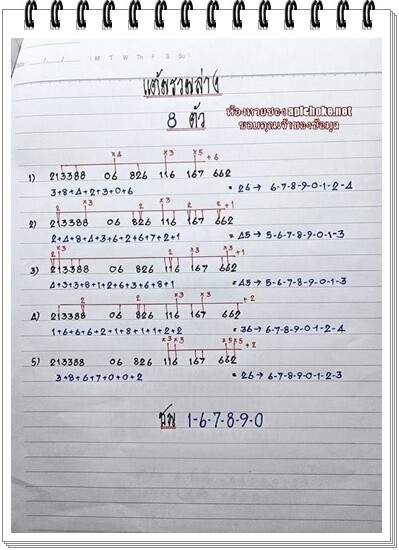 ( M T W Th F S Su )
แต้มรวมล่าง
8 ตัว
เรียงตามของ aplchoke.net
ขอบคุณเจ้าของข้อมูล
×4 ×3 ×5 + 6
1) 213388 06 826 116 167 662
3+8+4+2+3+0+6 = 26 → 6-7-8-9-0-1-2-4
2 ×3 2 2 2 2+1
2) 213388 06 826 116 167 662
2+4+8+4+3+6+2+6+7+2+1 = 45 → 5-6-7-8-9-0-1-3
2 ×3 2 ×3 + 1
3) 213388 06 826 116 167 662
4+3+3+8+1+2+6+3+6+8+1 = 45 → 5-6-7-8-9-0-1-3
2 2 ×3 + 2
4) 213388 06 826 116 167 662
1+6+6+6+2+1+8+1+1+2+2 = 36 → 6-7-8-9-0-1-2-4
×3 ×3 ×5 ×5 + 2
5) 213388 06 826 116 167 662
3+8+6+7+0+0+2 = 26 → 6-7-8-9-0-1-2-3
1-6-7-8-9-0